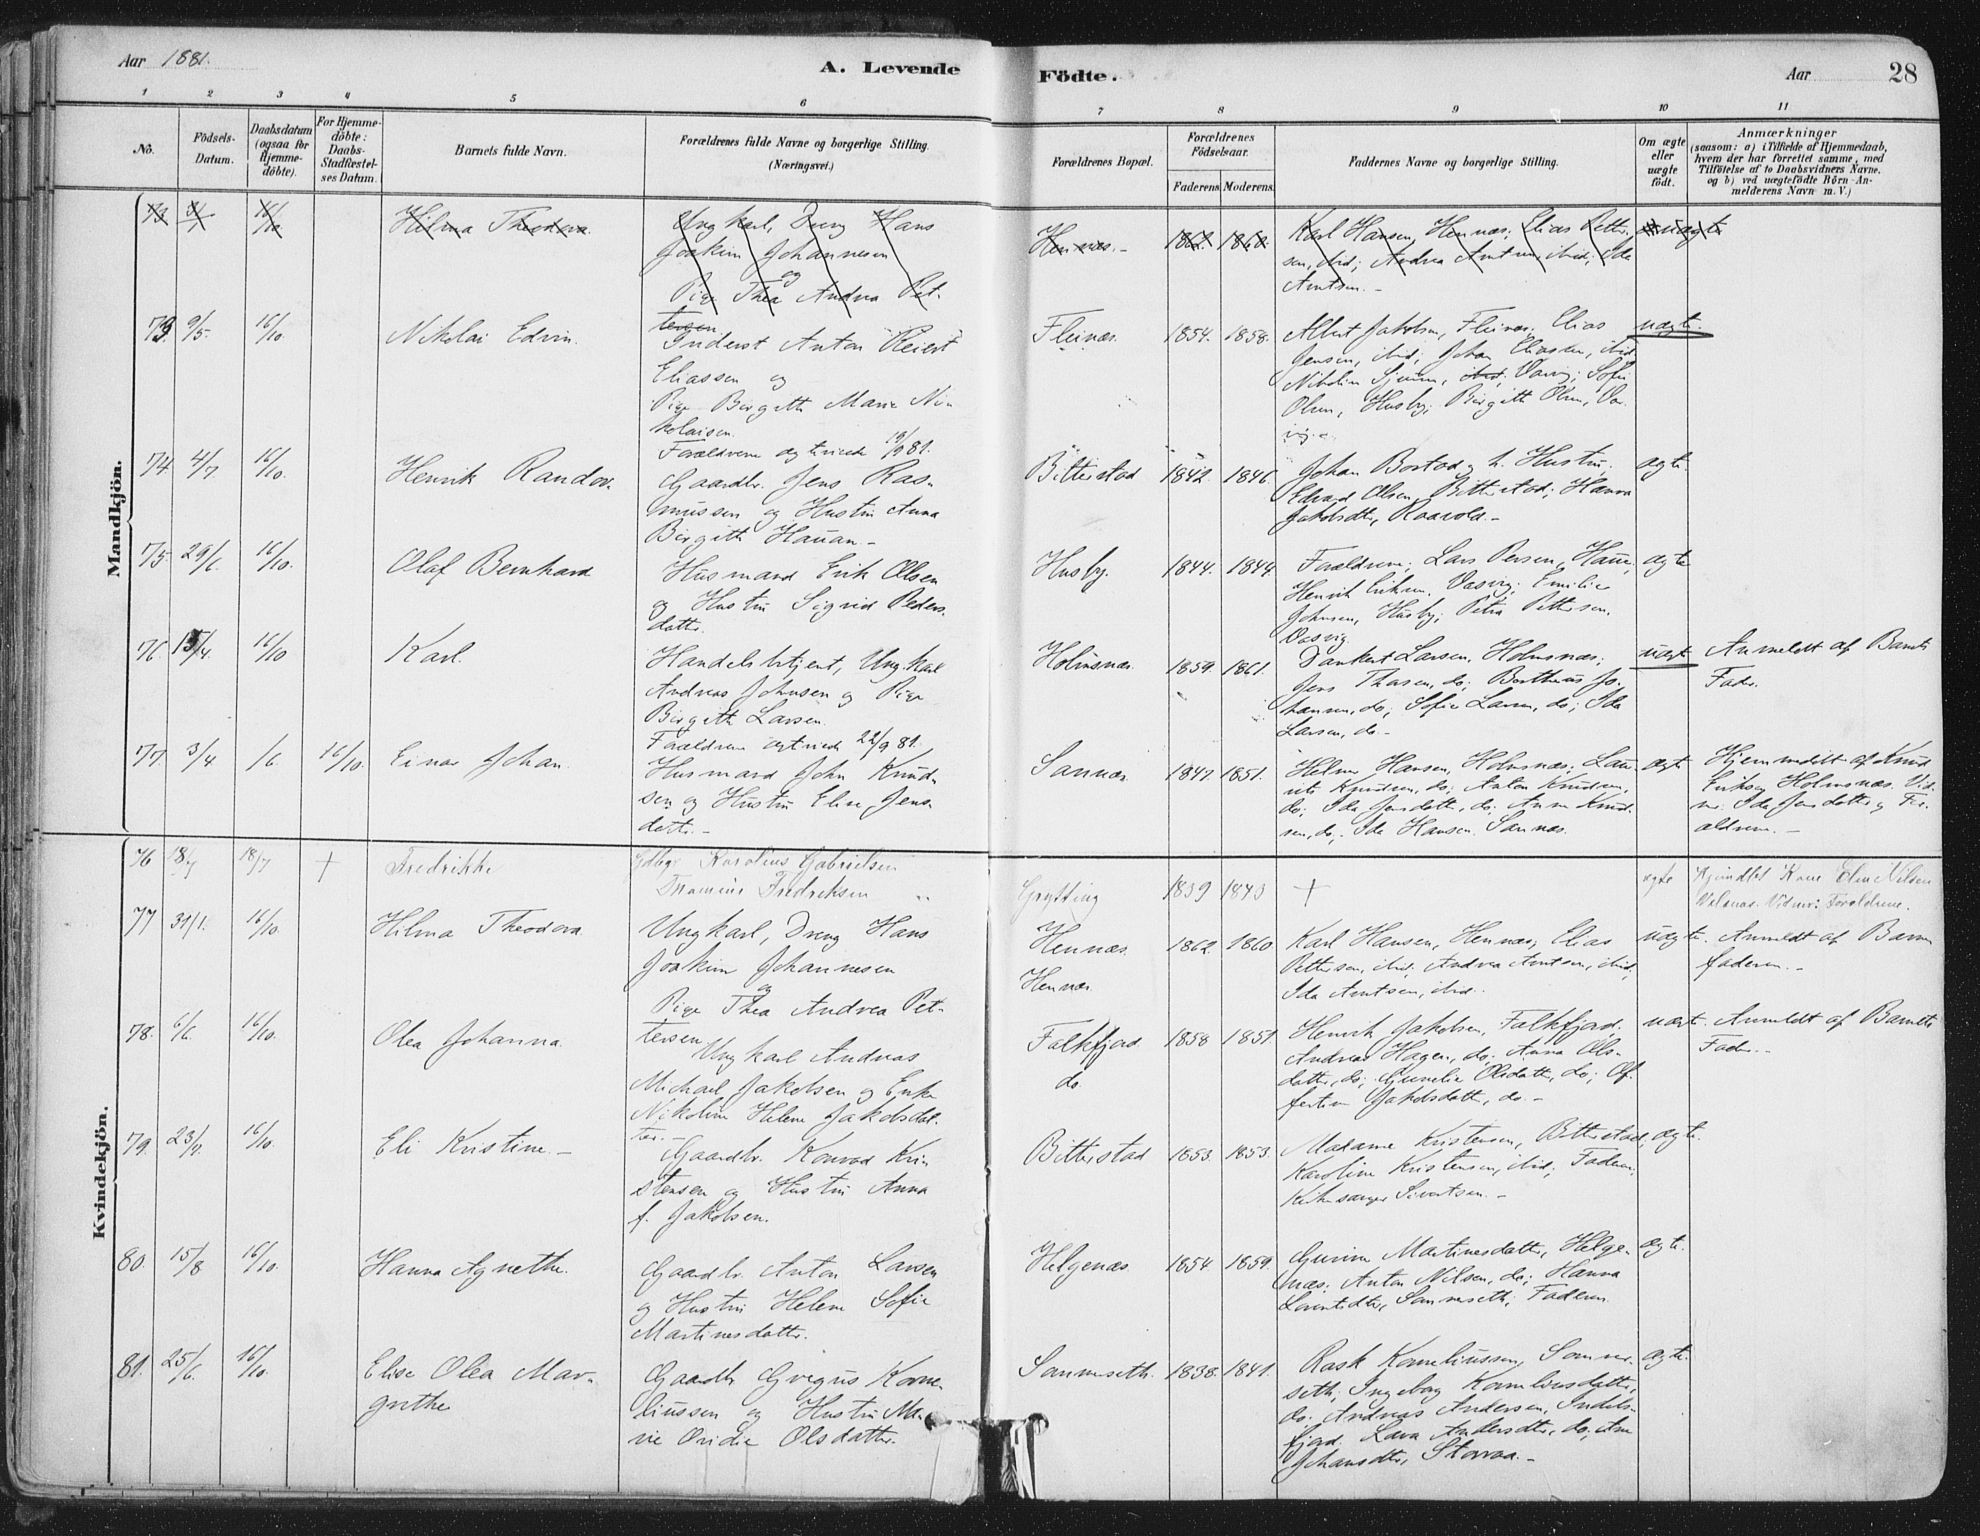 Aar 1881.
A. Levende
Födte.
Aar
28
1 2 3 4 5 6 7 8 9 10 11
No.
Födsels-
Datum.
Daabsdatum
(ogsaa for
Hjemme-
döbte).
For Hjemme-
döbte:
Daabs-
Stadfæstel-
ses Datum.
Barnets fulde Navn.
Forældrenes fulde Navne og borgerlige Stilling.
(Næringsvei.)
Forældrenes Bopæl.
Forældrenes
Födselsaar.
Faderens
Moderens
Faddernes Navne og borgerlige Stilling.
Om ægte
eller
uægte
födt.
Anmærkninger
(saasom: a) i Tilfælde af Hjemmedaab,
hvem der har forrettet samme, med
Tilföielse af to Daabsvidners Navne,
og b) ved uægtefödte Börn An-
melderens Navn m. V.)
Mandkjön.
73 16/10 Hilma Theodora. Ungkarl, Dreng Hans
Joakim Johannesen
og
Pige Thea Andrea Pet-
tersen
Hennæs. 1862. 1860. Karl Hansen, Hennæs; Elias Petter-
sen, ibid; Andrea Arntsen, ibid; Ida
Arntsen. uægte
73 9/5. 16/10. Nikolai Edvin. Inderst Anton Reiert
Eliassen og
Pige Birgitte Marie Ni-
kolaisen.
Fleinæs. 1854. 1858. Albert Jakobsen, Fleinæs; Elias
Jensen, ibid; Johan Eliassen, ibid
Olsen, Husby; Birgitte Olsen, Vas-
vig. uægte.
74 4/7. 16/10. Henrik Randov. Forældrene ægteviede 18/9 81.
Gaardbr. Jens Ras-
mussen og Hustru Anna
Birgitte Hauan
Bitterstad 1842. 1846. Johan Borstad og h. Hustru.
Edvard Olsen, Bitterstad; Hanna
Jakobsdtr, ægte.
75. 29/6. 16/10. Olaf Bernhard Husmand Erik Olsen
og Hustru Sigrid Peders-
datter.
Husby. 1844. 1844. Forældrene; Lars Persen, Haue;
Henrik Eriksen, Vasvig; Emilie
Johnsen, Husby; Petra Pettersen.
Vasvig. ægte
76. 15/4. 16/10 Karl. Handelsbetjent, Ungkarl
Andreas Johnsen og Pige
Birgitte Larsen.
Holmsnæs. 1859. 1861. Dankert Larsen, Holmsnæs;
Jens Thasen, do; Bertheus Jo-
hansen, do; Sofie Larsen, do; Ida
Larsen, do. uægte Anmeldt af Barnets
Fader.
77. 3/4 /6. 16/10. Einar Johan. Forældrene ægteviede 22/9 81.
Husmand John Knud-
sen og Hustru Elise Jens-
datter.
Sannæs. 1847. 1851. Helmer Hansen, Holmsnæs; Lau-
rits Knudsen, do; Anton Knudsen,
do; Ida Jensdatter, do; Anne Knud-
sen, do; Ida Hansen. Sannæs. ægte Hjemmedöbt af Knud
Eriksen Holmsnæs. Vid-
ner: Ida Jensdatter og For-
ældrene.
Kvindekjön.
76 18/7 18/7 † Fredrikke Gdbgr Karolius Gabrielsen
Fredriksen
Grytting 1839 1843 † ægte Hjemdöbt Kone Elen Nilsen
Vidner: Forældrene.
77 31/1. 16/10. Hilma Theodora Ungkarl, Dreng Hans
Joakim Johannesen
og
Pige Thea Andrea Pet-
tersen
Hennæs.
Hennæs. 1862. 1860. Karl Hansen, Hennæs; Elias
Pettersen, ibid; Andrea Arntsen, ibid;
Ida Arntsen, ibid. uægte. Anmeldt af Barne-
faderen.
78. 6/6. 16/10. Olea Johanna. Ungkarl Andreas
Michael Jakobsen og Enke
Nikoline Helene Jakobsdat-
ter.
Falkfjord
do. 1858 1851. Henrik Jakobsen, Falkfjord;
Andreas Hagen, do; Anna Ols-
datter, do; Gunelie Olsdatter, do; Of-
fertine Jakobsdatter, do. uægt. Anmeldt af Barnets
Fader.
79. 23/7. 16/10. Eli Kristine. Gaardbr. Konrad Kri-
stensen og Hustru Anna
f. Jakobsen.
Bitterstad 1853. 1853. Madame Kristensen, Bitterstad;
Karoline Kristensen, ibid; Faderen;
Kirkesanger Sivertsen. ægte.
80. 15/8 16/10. Hanna Agnethe. Gaardbr. Anton Larsen
og Hustru Helene Sofie
Martinesdatter.
Helgenæs 1854 1859. Gurine Martinesdatter, Helge-
næs; Anton Nilsen, do; Hanna
Lorentsdtr, Sannesseth; Faderen. ægte.
81. 25/6. 16/10. Elise Olea Mar-
grethe Gaardbr Gregus Korne-
liussen og Hustru Ma-
rie Ovidie Olsdatter.
Sommeseth. 1838. 1841. Rask Korneliussen, Somme-
seth; Ingeborg Korneliusdatter,
do; Andreas Andersen, Indels-
fjord. Lava Andersdtr, do; Ane
Johansdtr, ægte.